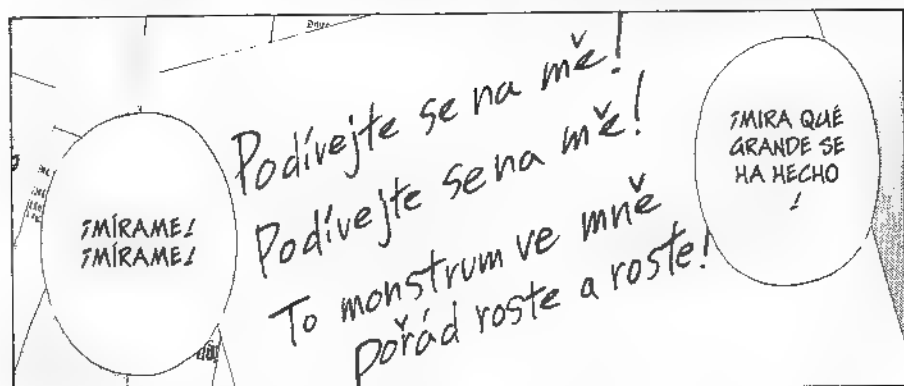 ¡MÍRAME!
¡MÍRAME!
Podívejte se na mě!
Podívejte se na mě!
To monstrum ve mně
pořád roste a roste!
¡MIRA QUÉ
GRANDE SE
HA HECHO
!